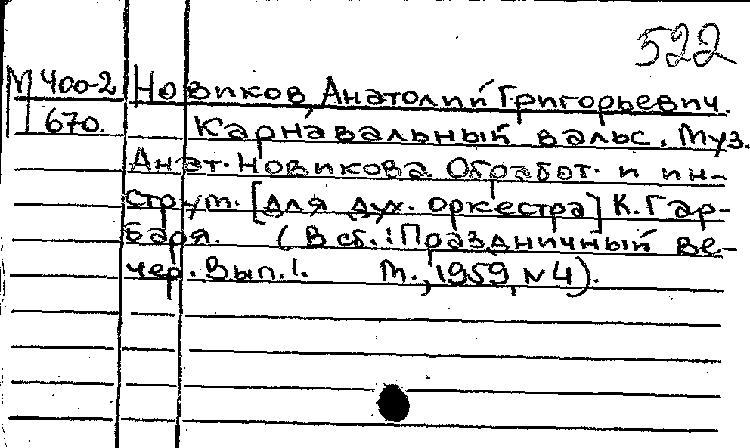 522
М 400-2 Новиков, Анатолий Григорьевич.
670. Карнавальный вальс. Муз.
Анат. Новикова. Обработ. и ин-
струм. [для дух. оркестра] К. Гар-
баря. (В сб.: Праздничный ве-
чер. Вып. 1. М., 1959, № 4).